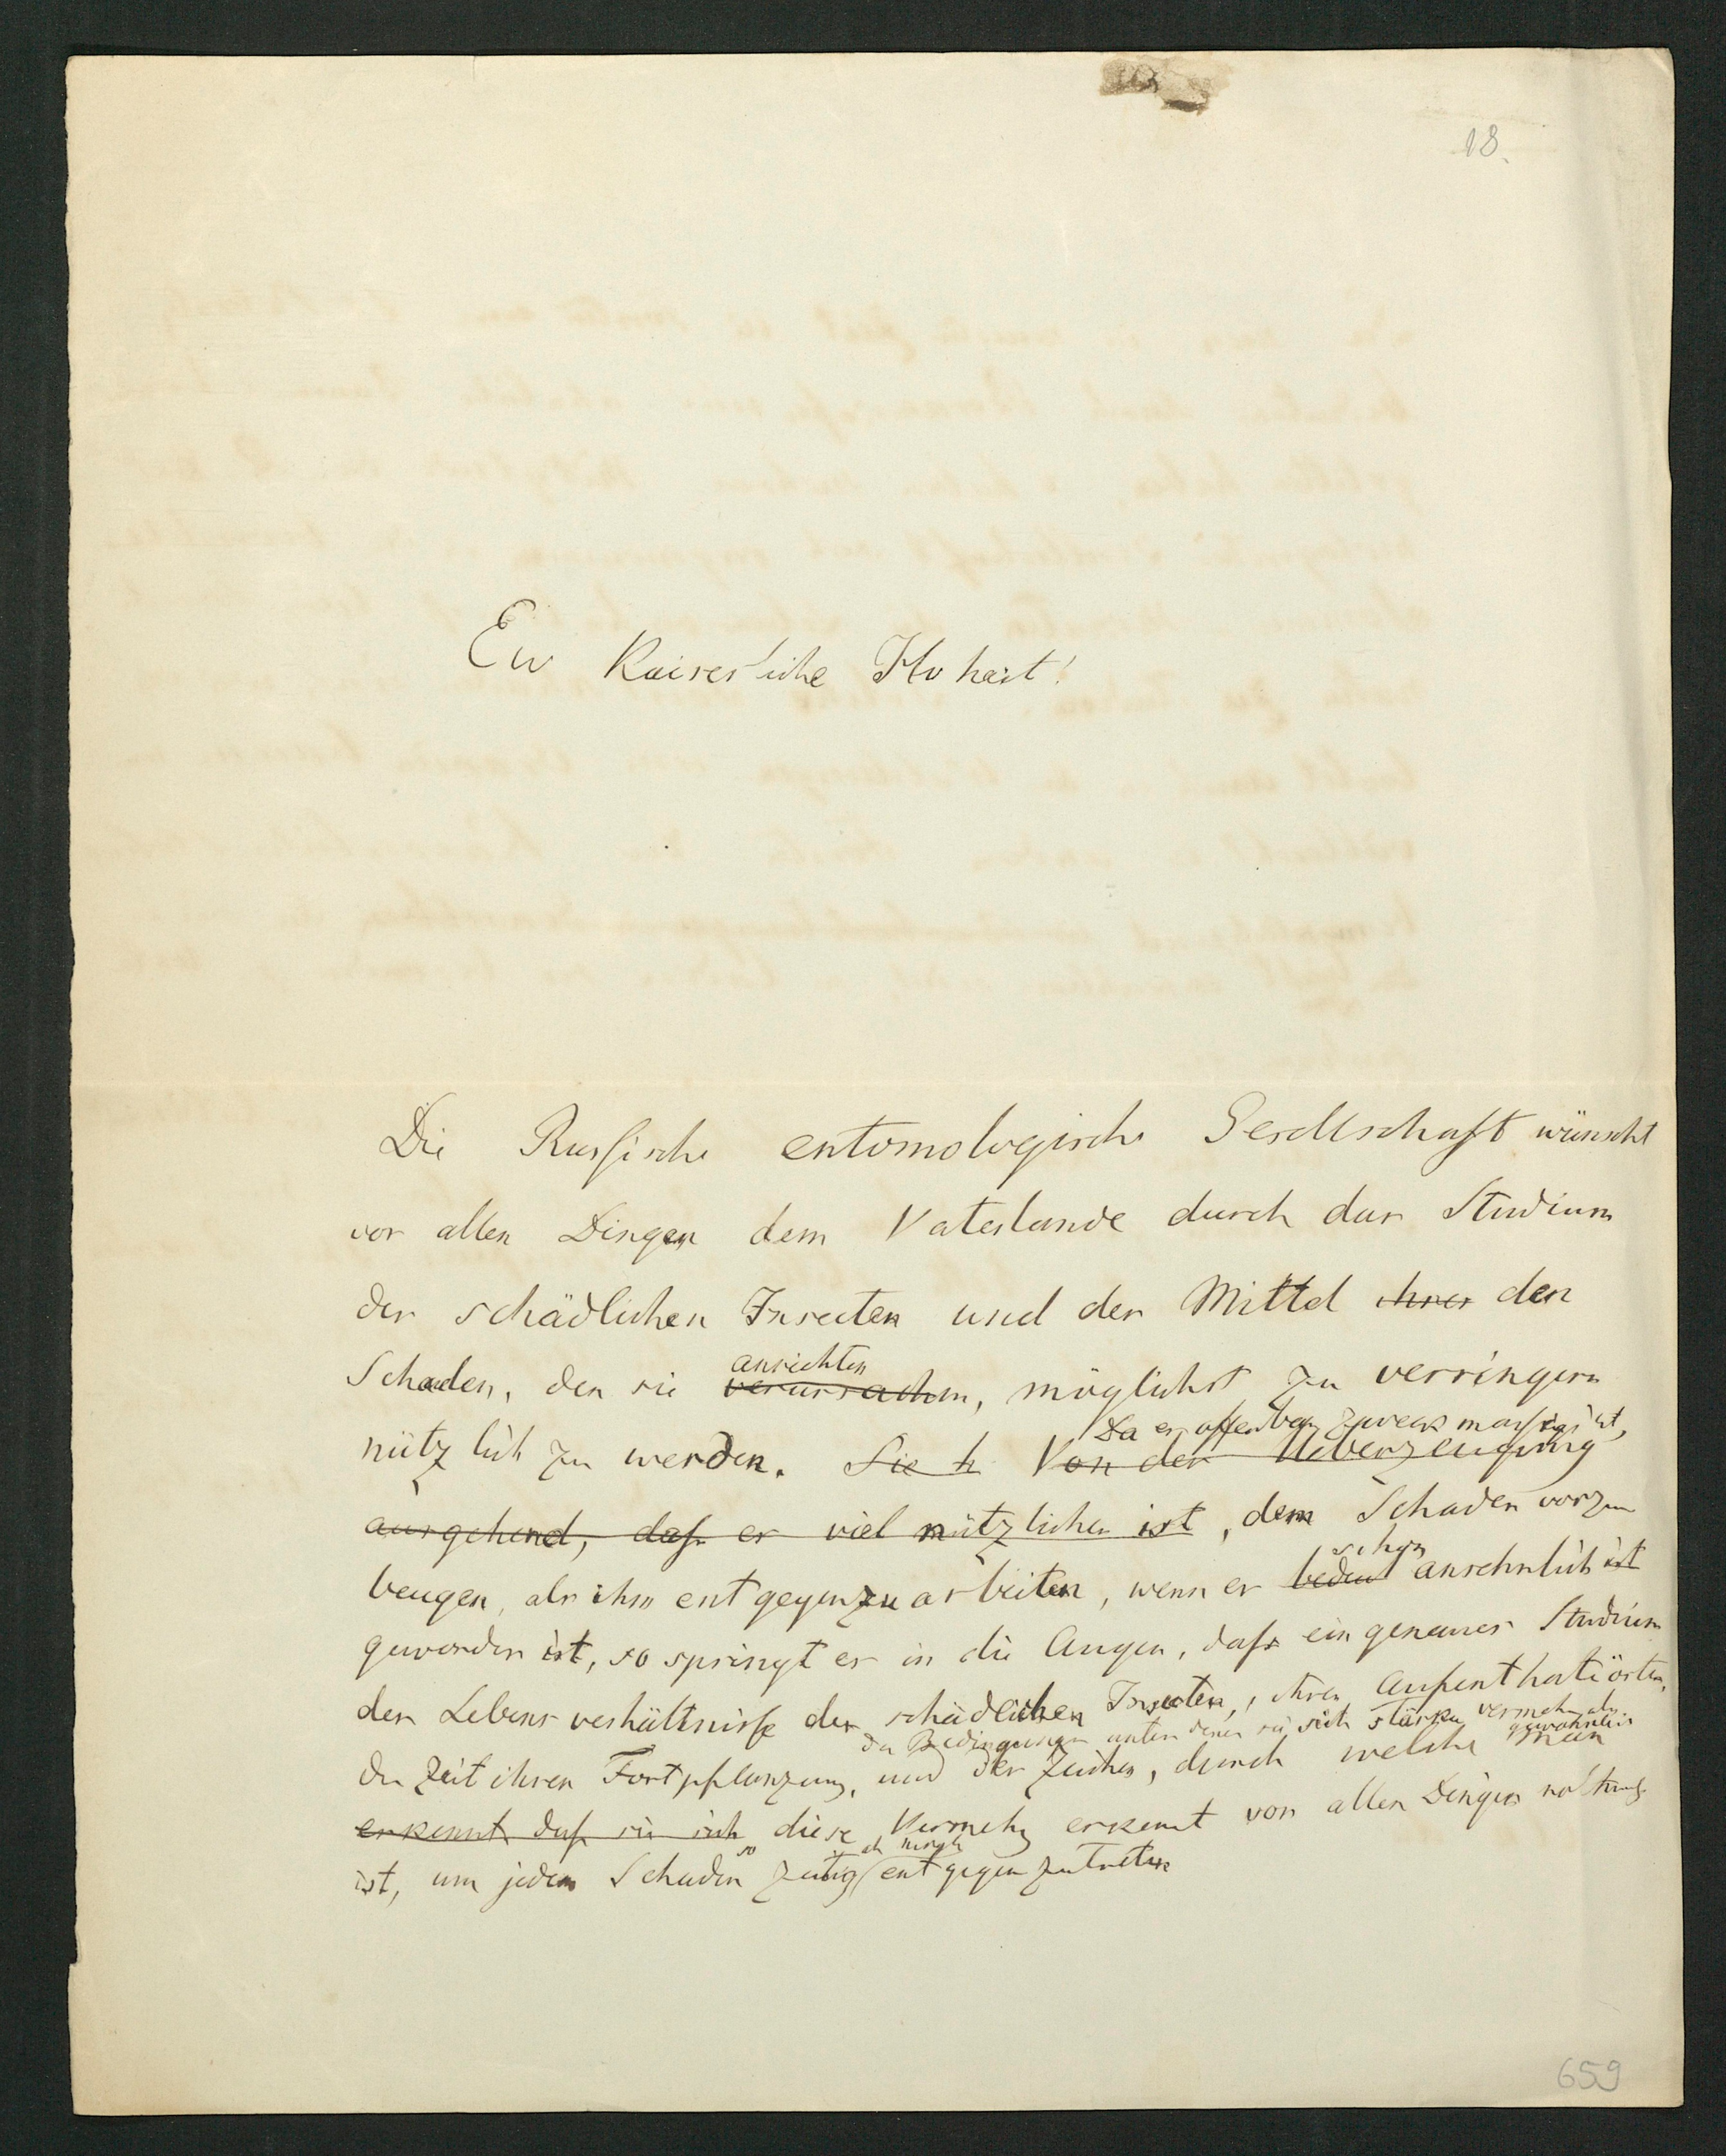 18.
Ew Kaiserliche Hoheit!
Die Russische entomologische Gesellschaft wünscht
vor allen Dingen dem Vaterlande durch das Studium
der schädlichen Insecten und der Mittel ihres den
Schaden, den sie verursachen, möglichst zu verringern
anrichten
nützlich zu werden. Sie h Von der Ueberzeugung
Da es offenbar zweckmässig ist,
ausgehend, dass es viel nützlicher ist, dem Schaden vorzu
beugen, als ihm entgegenzuarbeiten, wenn er bedeut ansehnlich ist
schon
geworden ist, so springt es in die Augen, dass ein genaues Studium
der Lebensverhältnisse der schädlichen Insecten, ihren Aufenthaltsörter,
der Bedingungen unter denen sie sich stärker vermehren als
gewöhnlich
der Zeit ihrer Fortpflanzung, und der Zeichen, durch welche man
erkennt dass sie sich diese Vermehrg erkennt vor allen Dingen nothwendig
ist, um jedem Schaden so zeitig als möglich entgegen zutreten
659